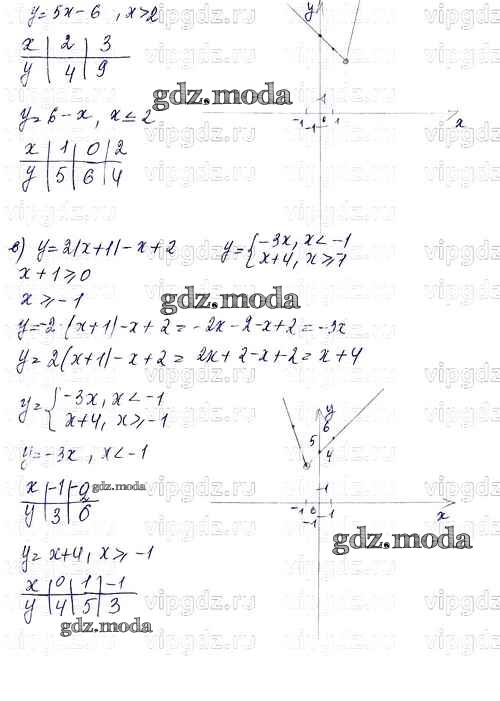 y=5x-6, x>2
x | 2 | 3
y | 4 | 9
y=6-x, x≤2
x | 1 | 0 | 2
y | 5 | 6 | 4
y
1
-1
-1
0
1
x
gdz.moda
в) y=2|x+1|-x+2
y={-3x, x<-1
x+4, x≥1
x+1≥0
x≥-1
gdz.moda
y=-2·(x+1)-x+2=-2x-2-x+2=-3x
y=2(x+1)-x+2=2x+2-x+2=x+4
y={-3x, x<-1
x+4, x≥-1
y=-3x, x<-1
x | -1 | -2
y | 3 | 6
gdz.moda
y
6
5
4
1
-1
0
1
-1
x
gdz.moda
y=x+4, x≥-1
x | 0 | 1 | -1
y | 4 | 5 | 3
gdz.moda
vipgdz.ru